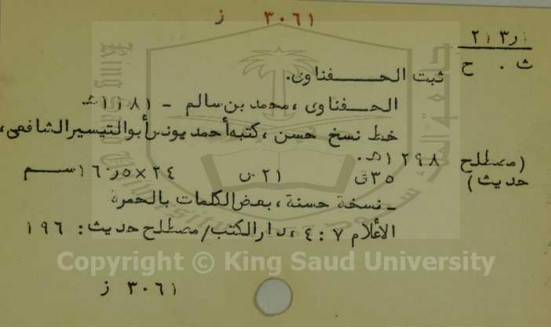 ٣٠٦١ ز
٢١٣٫١
ث . ح
ثبت الحفناوى.
الحفناوى ، محمد بن سالم - ١١٨١هـ
خط نسخ حسن ، كتبه أحمد يونس أبو التيسير الشافعى،
(مصطلح حديث)
١٢٩٨هـ.
٣٥ق ٢١س ٢٤×١٦٫٥سم
ـ نسخة حسنة ، بعض الكلمات بالحمرة
الأعلام ٧ : ٤ ، دار الكتب/مصطلح حديث: ١٩٦
Copyright © King Saud University
٣٠٦١ ز